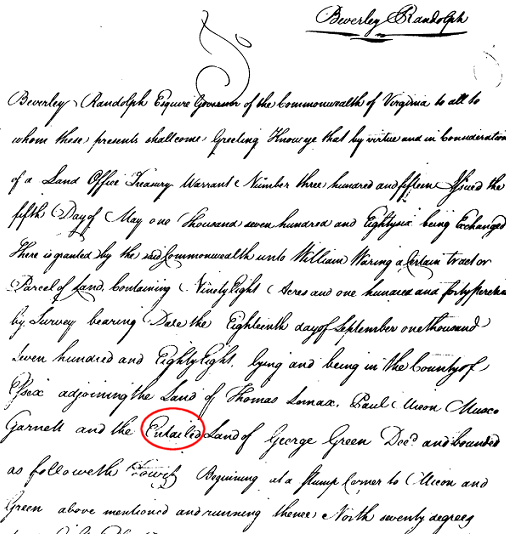 Beverley Randolph
To
Beverley Randolph Esquire Governor of the Commonwealth of Virginia to all to
whom these presents shall come Greeting Know ye that by virtue and in Consideration
of a Land Office Treasury Warrant Number three hundred and fifteen Issued the
fifth Day of May one thousand seven hundred and Eighty six being Exchanged
There is granted by the said Commonwealth unto William Waring a Certain tract or
Parcel of Land Containing Ninety Eight Acres and one hundred and forty perches
by Survey bearing Date the Eighteenth day of September one thousand
Seven hundred and Eighty Eight, lying and being in the County of
Essex adjoining the Land of Thomas Lomax, Paul Micou Musco
Garnett and the Entailed Land of George Green Decd and bounded
as followeth Towit Beginning at a stump Corner to Micou and
Green above mentioned and running thence North seventy degrees